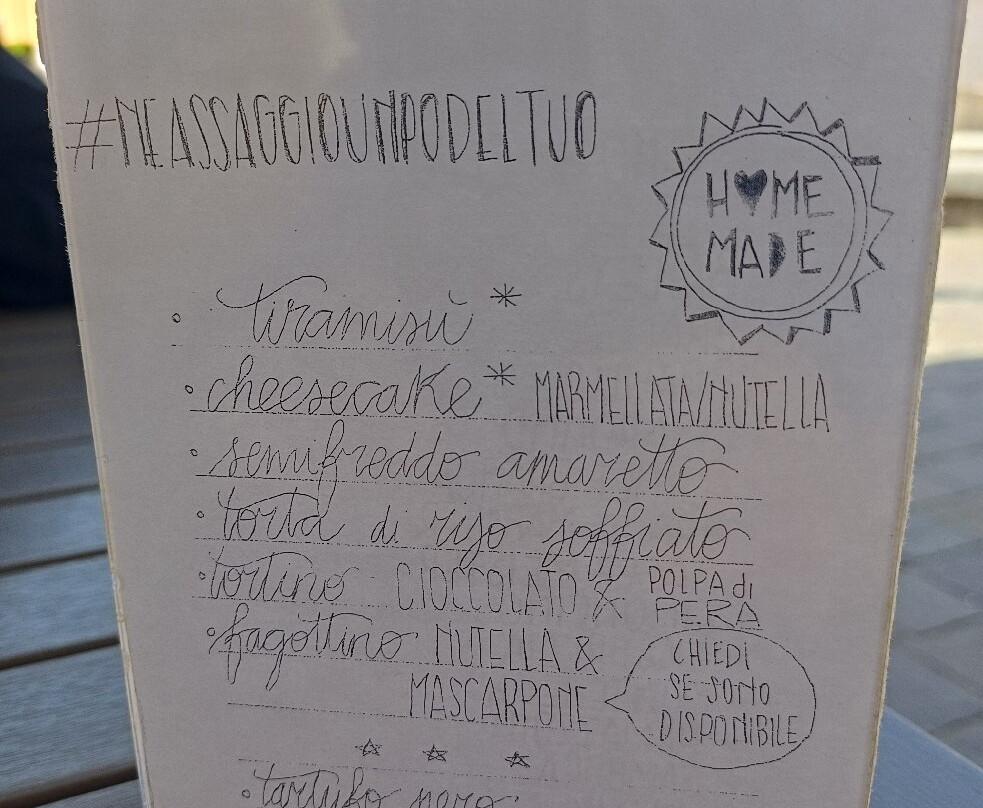 #NEASSAGGIOUNPODELTUO
HOME
MADE
• tiramisù *
• cheesecake * MARMELLATA/NUTELLA
• semifreddo amaretto
• torta di riso soffiato
• tortino CIOCCOLATO & POLPA di PERA
• fagottino NUTELLA &
MASCARPONE
CHIEDI
SE SONO
DISPONIBILE
☆ ☆ ☆
• tartufo nero